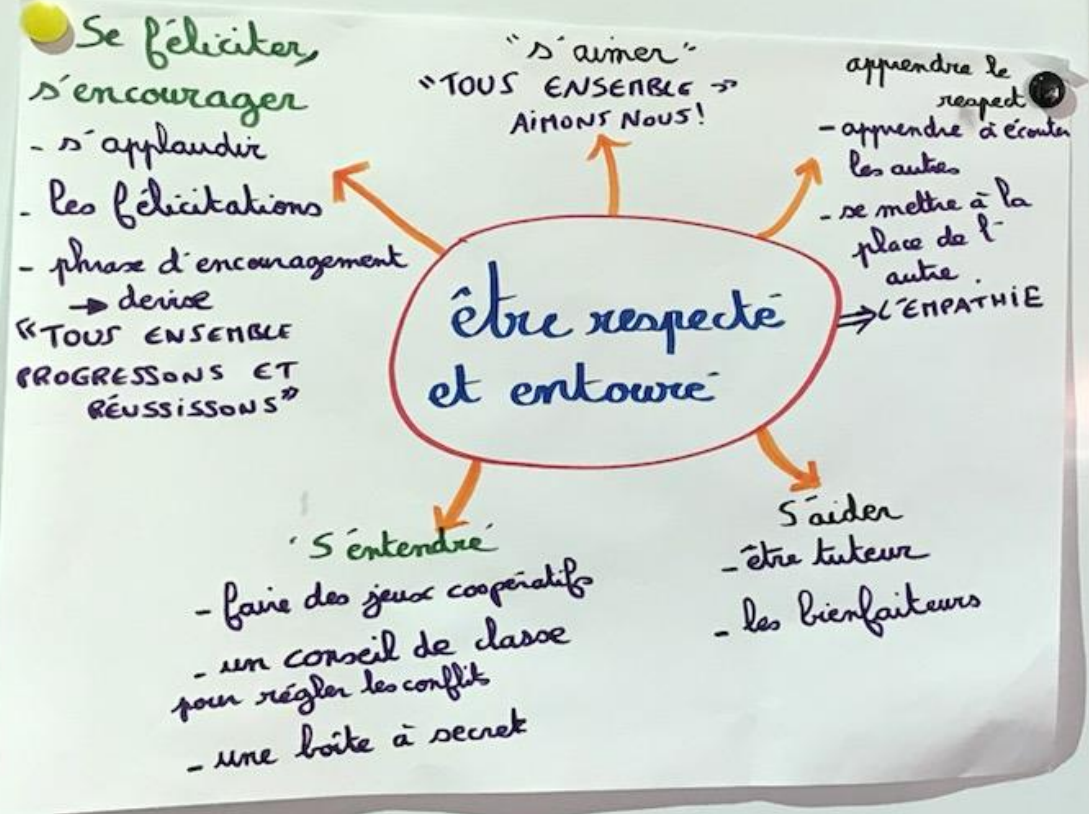 Se féliciter,
s'encourager
- s'applaudir
- les félicitations
- phrase d'encouragement
→ devise
"TOUS ENSEMBLE
PROGRESSONS ET
RÉUSSISSONS"
"s'aimer"
"TOUS ENSEMBLE"
AIMONS NOUS!
apprendre le
respect
- apprendre à écouter
les autres
- se mettre à la
place de l'
autre.
⇒ L'EMPATHIE
être respecté
et entouré
'S'entendre'
- faire des jeux coopératifs
- un conseil de classe
pour régler les conflits
- une boîte à secret
S'aider
- être tuteur
- les bienfaiteurs